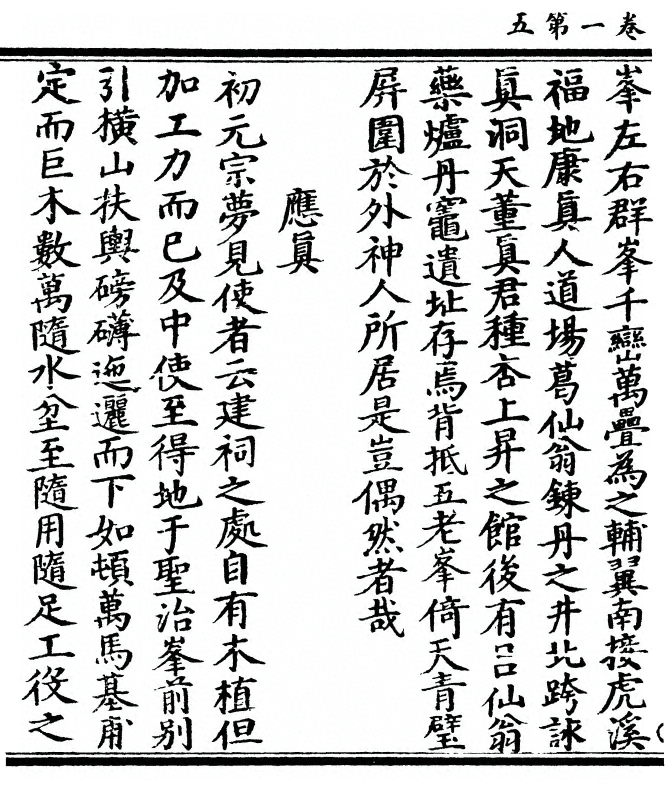 卷一第五
峯左右群峯千巒萬疊為之輔翼南接虎溪
福地康眞人道場葛仙翁鍊丹之井北跨詠
眞洞天董眞君種杏上昇之館後有呂仙翁
藥爐丹竈遺址存焉背抵五老峯倚天青壁
屏圍於外神人所居是豈偶然者哉
應眞
初元宗夢見使者云建祠之處自有木植但
加工力而已及中使至得地于聖治峯前別
引橫山扶輿磅礴迤邐而下如頓萬馬基甫
定而巨木數萬隨水坌至隨用隨足工役之